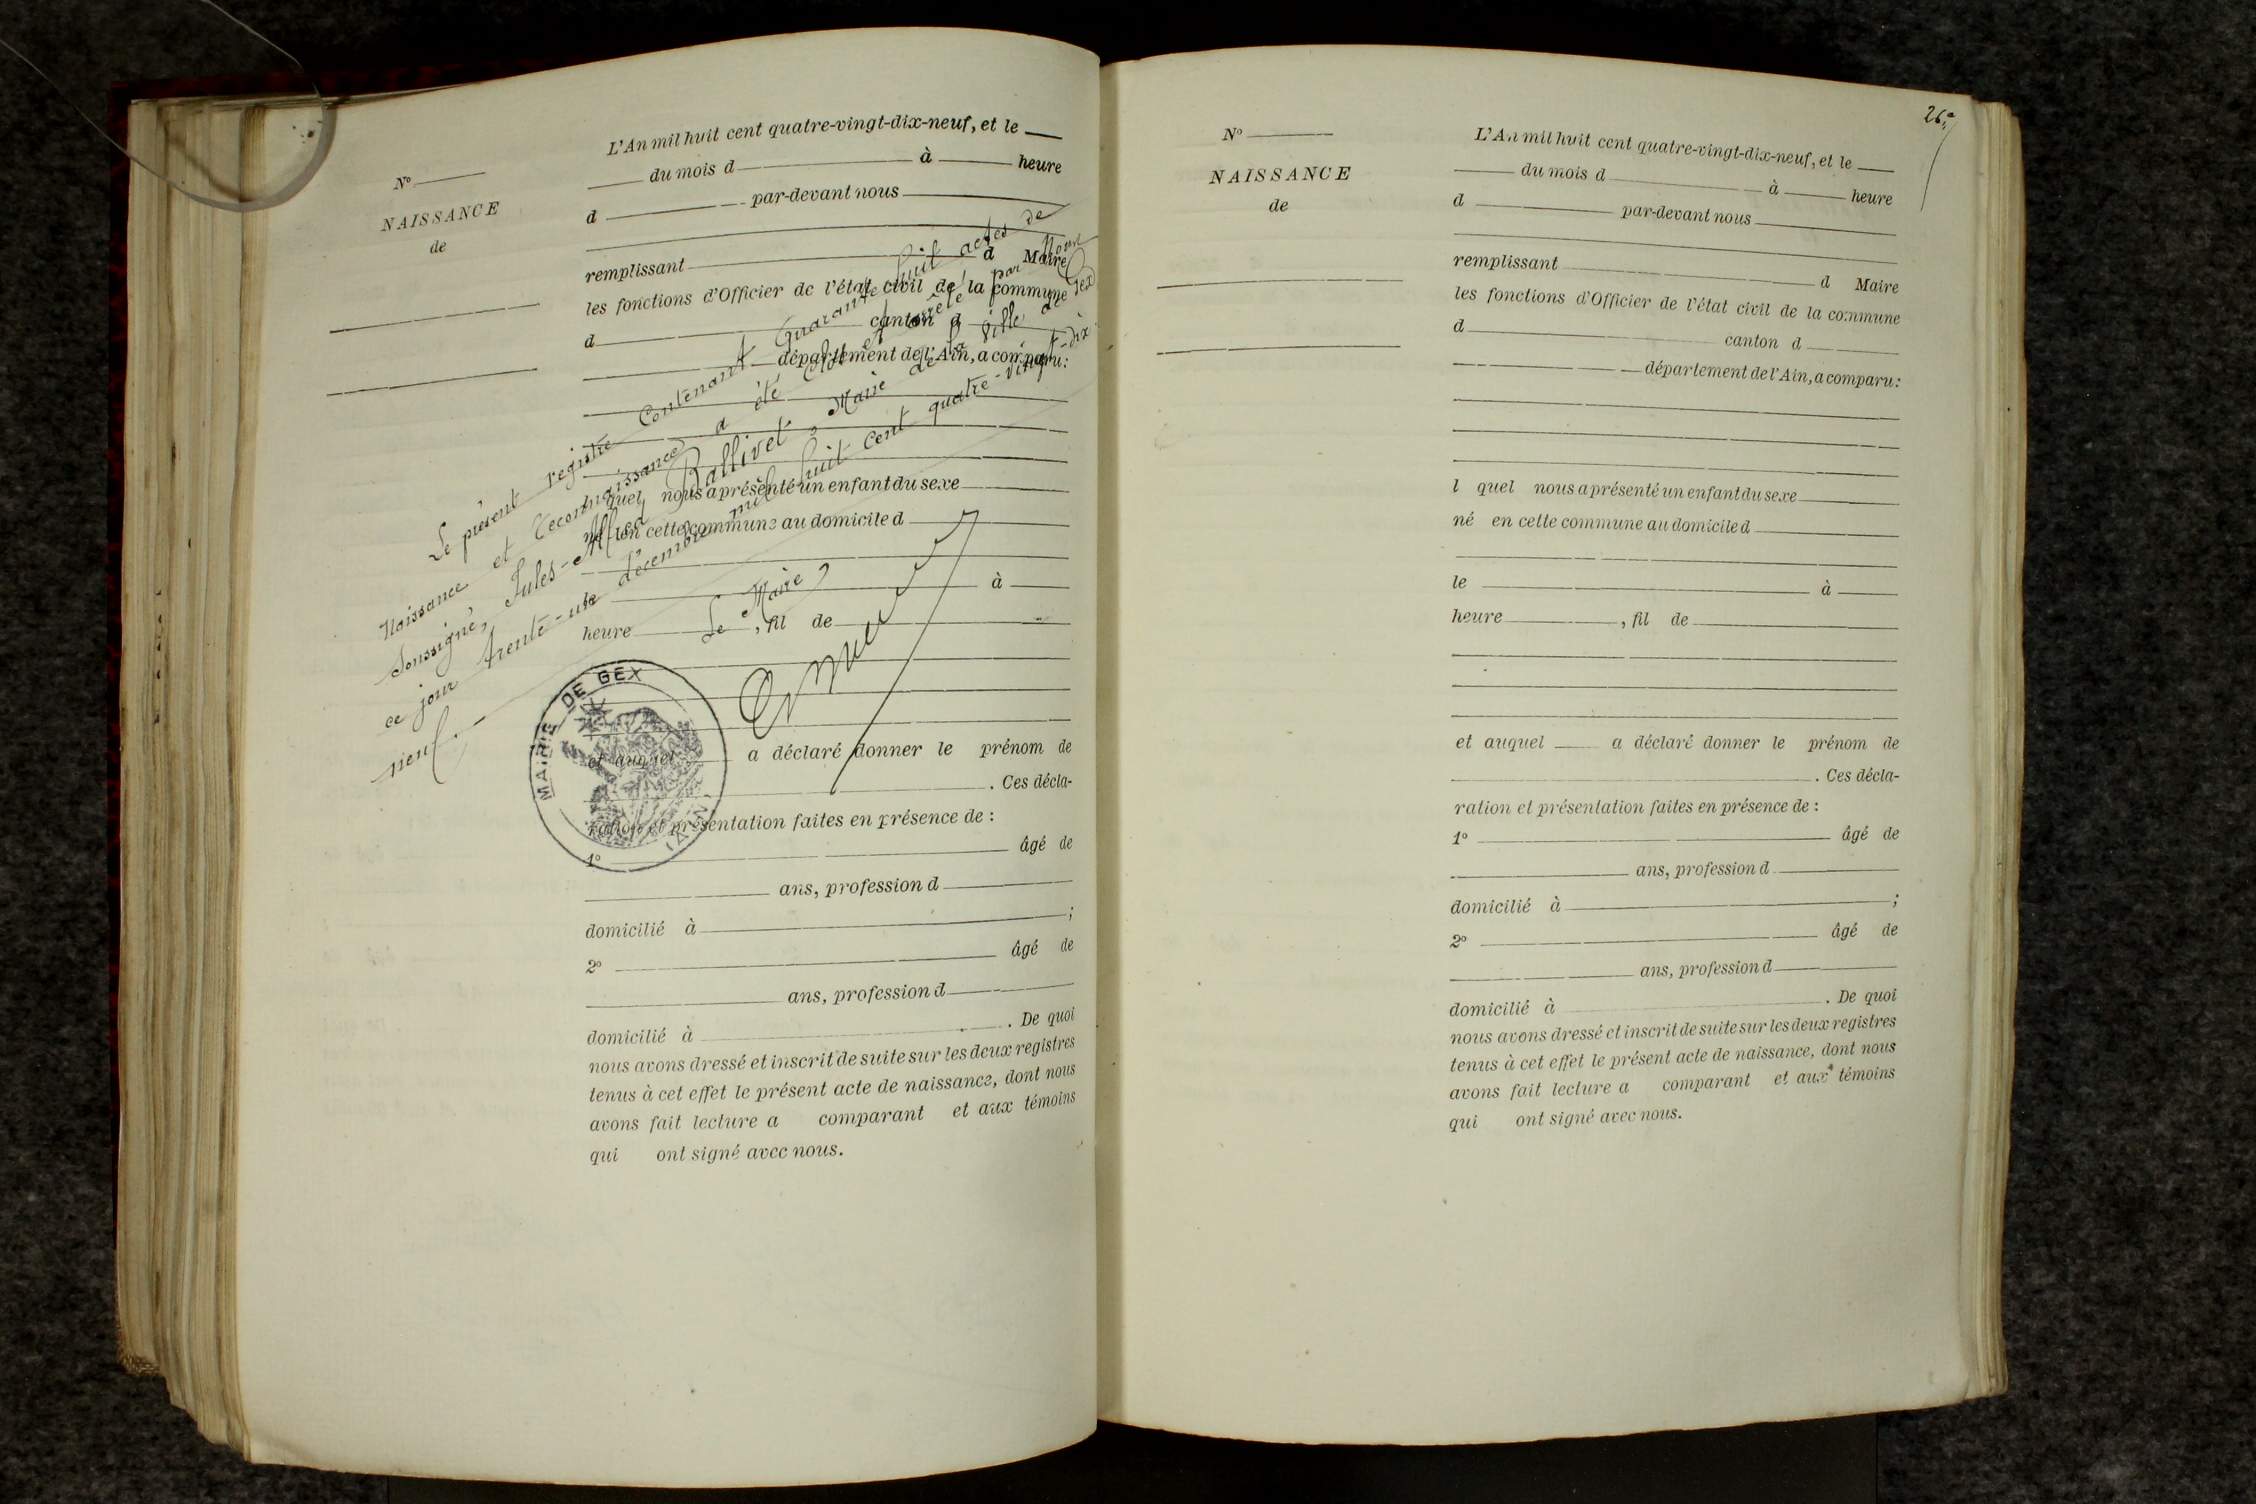 N°
NAISSANCE
de
L'An mil huit cent quatre-vingt-dix-neuf, et le
du mois d à heure
d par-devant nous
remplissant d Maire
les fonctions d'Officier de l'état civil de la commune
d canton d
département de l'Ain, a comparu :
quel nous a présenté un enfant du sexe
né en cette commune au domicile d
à
heure , fil de
et auquel a déclaré donner le prénom de
. Ces décla-
ration et présentation faites en présence de :
1° âgé de
ans, profession d
domicilié à ;
2° âgé de
ans, profession d
domicilié à . De quoi
nous avons dressé et inscrit de suite sur les deux registres
tenus à cet effet le présent acte de naissance, dont nous
avons fait lecture a comparant et aux témoins
qui ont signé avec nous.
Le présent registre contenant quarante huit actes de
Naissance et reconnaissance, a été clos et arrêté par Nous
soussigné, Jules-Alfred Rallivet, Maire de la Ville de Gex
ce jour trente-un décembre mil huit cent quatre-vingt-dix
neuf.
Le Maire,
MAIRIE DE GEX
(AIN)
26e
N°
NAISSANCE
de
L'An mil huit cent quatre-vingt-dix-neuf, et le
du mois d à heure
d par-devant nous
remplissant d Maire
les fonctions d'Officier de l'état civil de la commune
d canton d
département de l'Ain, a comparu :
l quel nous a présenté un enfant du sexe
né en cette commune au domicile d
le à
heure , fil de
et auquel a déclaré donner le prénom de
. Ces décla-
ration et présentation faites en présence de :
1° âgé de
ans, profession d
domicilié à ;
2° âgé de
ans, profession d
domicilié à . De quoi
nous avons dressé et inscrit de suite sur les deux registres
tenus à cet effet le présent acte de naissance, dont nous
avons fait lecture a comparant et aux témoins
qui ont signé avec nous.